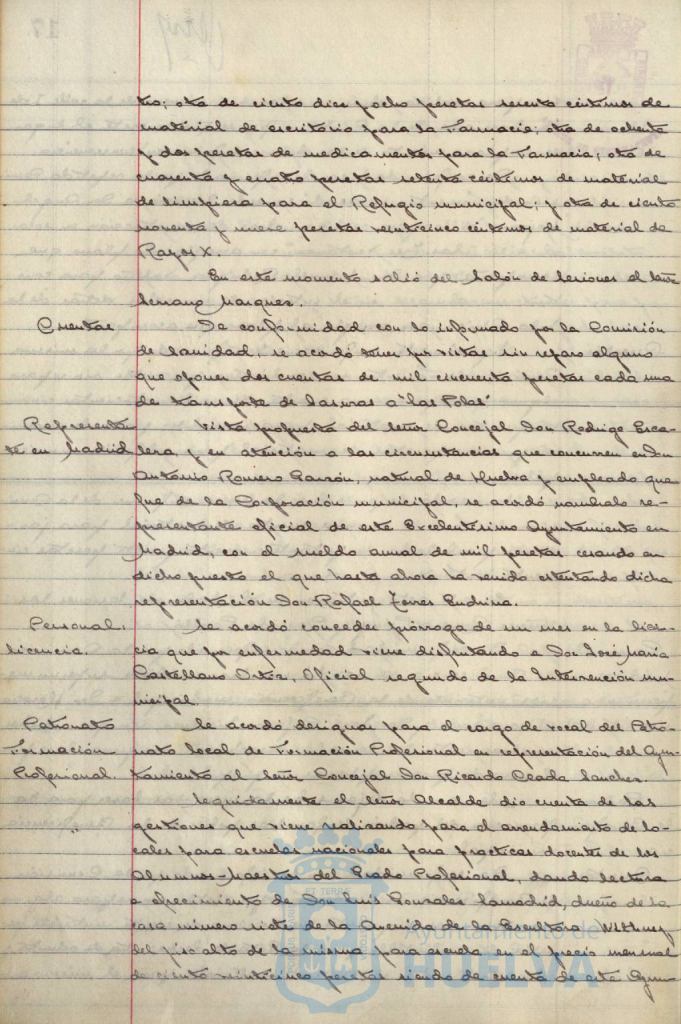 tro; otra de ciento diez y ocho pesetas sesenta céntimos de
material de escritorio para la Farmacia; otra de ochenta
y dos pesetas de medicamentos para la Farmacia; otra de
cuarenta y cuatro pesetas setenta céntimos de material
de limpieza para el Refugio municipal; y otra de ciento
noventa y nueve pesetas veinticinco céntimos de material de
Rayos X.
En este momento salió del Salón de Sesiones el señor
Serrano Marquez.
Cuentas
De conformidad con lo informado por la Comisión
de Sanidad, se acordó tener por vistas sin reparo alguno
que oponer dos cuentas de mil cincuenta pesetas cada una
de transporte de basuras a "las Polas"
Representan
te en Madrid
Vista propuesta del señor Concejal Don Rodrigo Esca-
lera, y en atención a las circunstancias que concurren en Don
Antonio Romero Garzón, natural de Huelva y empleado que
fue de la Corporación municipal, se acordó nombralo re-
presentante oficial de este Excelentisimo Ayuntamiento en
Madrid, con el sueldo anual de mil pesetas cesando en
dicho puesto el que hasta ahora ha venido ostentando dicha
representación Don Rafael Torres Endrina.
Personal.
licencia.
Se acordó conceder prórroga de un mes en la licen-
cia que por enfermedad viene disfrutando a Don José María
Castellano Ortiz, Oficial segundo de la Intervención mu-
nicipal.
Patronato
Formación
Profesional.
Se acordó designar para el cargo de vocal del Patro-
nato local de Formación Profesional en representación del Ayun-
tamiento al señor Concejal Don Ricardo Terrades Sanchez.
"
Seguidamente el señor Alcalde dio cuenta de las
gestiones que viene realizando para el arrendamiento de lo-
cales para escuelas nacionales para practicas docentes de los
Alumnos-Maestros del Grado Profesional, dando lectura
a ofrecimiento de Don Luis Gonzales Samadrid, dueño de la
casa número siete de la Avenida de la Escultora Withney
del piso alto de la misma para escuela en el precio mensual
de ciento veinticinco pesetas siendo de cuenta de este Ayun-
Ayuntamiento de
HUELVA